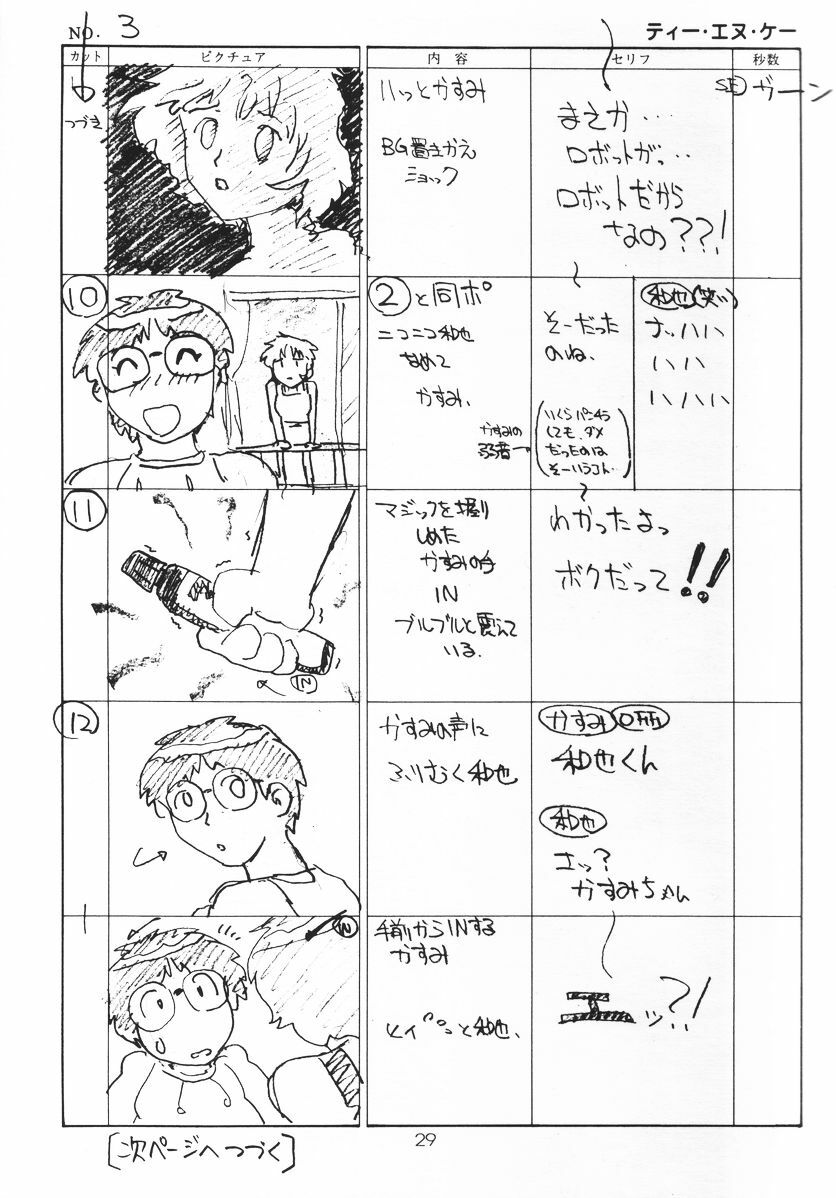 NO. 3
ティー・エヌ・ケー
カット
ピクチュア
内容
セリフ
秒数
つづき
ハッとかすみ
BG置きかえ
ショック
まさか・・
ロボットが・・・
ロボットだから
なの??!
SE ガーン
10
②と同ポ
ニコニコ和也
なめて
かすみ、
そーだった
のね、
かすみの
いくらパンチラ
しても、ダメ
だったのは
そーいうコト‥
和也(笑い)
ハハ
ハハハ
11
マジックを握り
しめた
かすみの手
IN
ブルブルと震えて
いる.
わかったよっ
ボクだって!!
IN
12
かすみの声に
ふりむく和也
かすみ
和也くん
和也
えッ?
かすみちゃん
IN
手前からINする
かすみ
と和也、
エッ?!
[次ページへつづく]
29